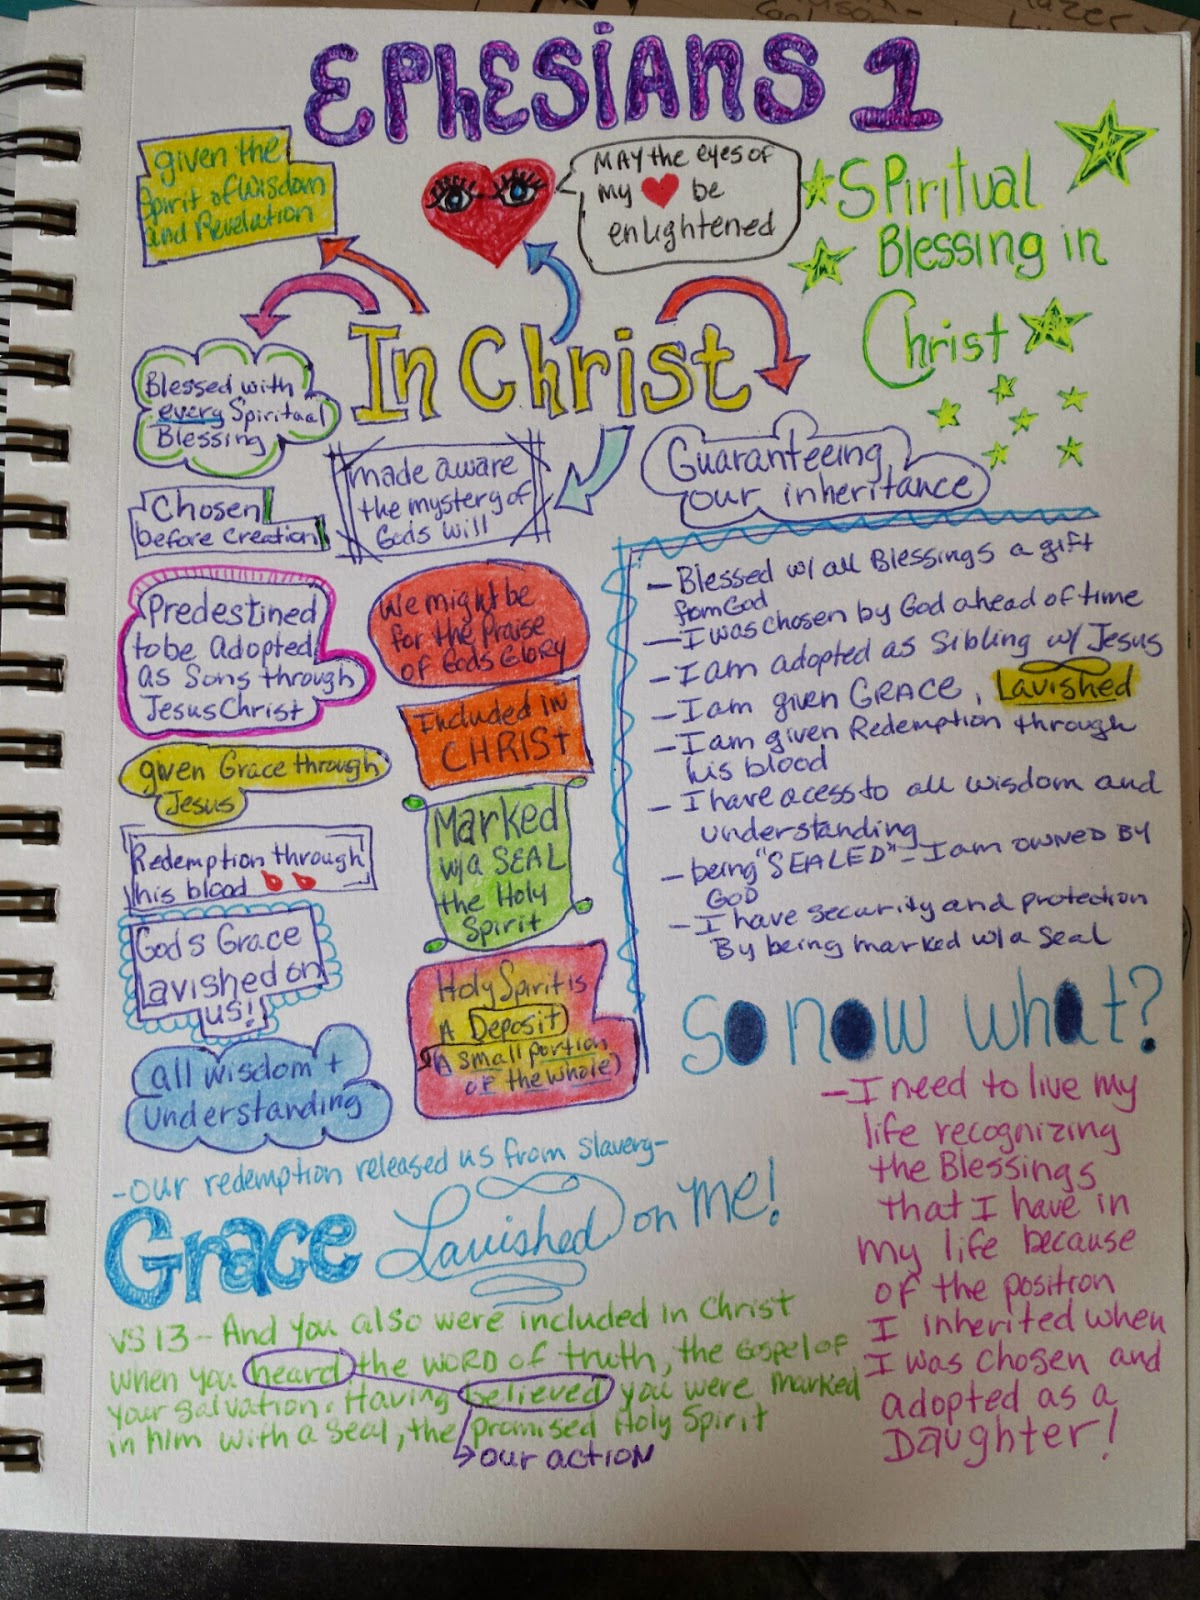 EPhESiANS 1
given the
Spirit of Wisdom
and Revelation
MAY the eyes of
my ❤ be
enlightened
SPiritual
Blessing in
Christ
In Christ
Blessed with
every Spiritual
Blessing
made aware
the mystery of
Gods will
Guaranteeing
our inheritance
Chosen
before creation
Predestined
to be Adopted
as Sons through
Jesus Christ
We might be
for the Praise
of Gods Glory
Included IN
CHRIST
given Grace through
Jesus
Marked
w/a SEAL
the Holy
Spirit
Redemption through
his blood
Gods Grace
Lavished on
us!
Holy Spirit is
A Deposit
(A small portion
of the whole)
all wisdom +
Understanding
- Blessed w/ all Blessings a gift
from God
- I was chosen by God ahead of time
- I am adopted as Sibling w/ Jesus
- I am given GRACE, Lavished
- I am given Redemption through
his blood
- I have acess to all wisdom and
understanding
- being "SEALED" - I am OWNED BY
GOD
- I have security and protection
By being marked w/a Seal
So now what?
- I need to live my
life recognizing
the Blessings
that I have in
my life because
of the position
I inherited when
I was chosen and
adopted as a
Daughter!
- our redemption released us from Slavery -
Grace Lavished on Me!
VS 13 - And you also were included in Christ
when you heard the WORD of truth, the Gospel of
your salvation. Having believed you were marked
in him with a Seal, the promised Holy Spirit
our action